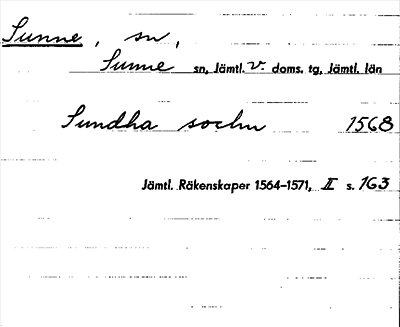 Sunne, sn,
Sunne sn, Jämtl. v. doms. tg, Jämtl. län
Sundha sochn 1568
Jämtl. Räkenskaper 1564–1571, II s. 163